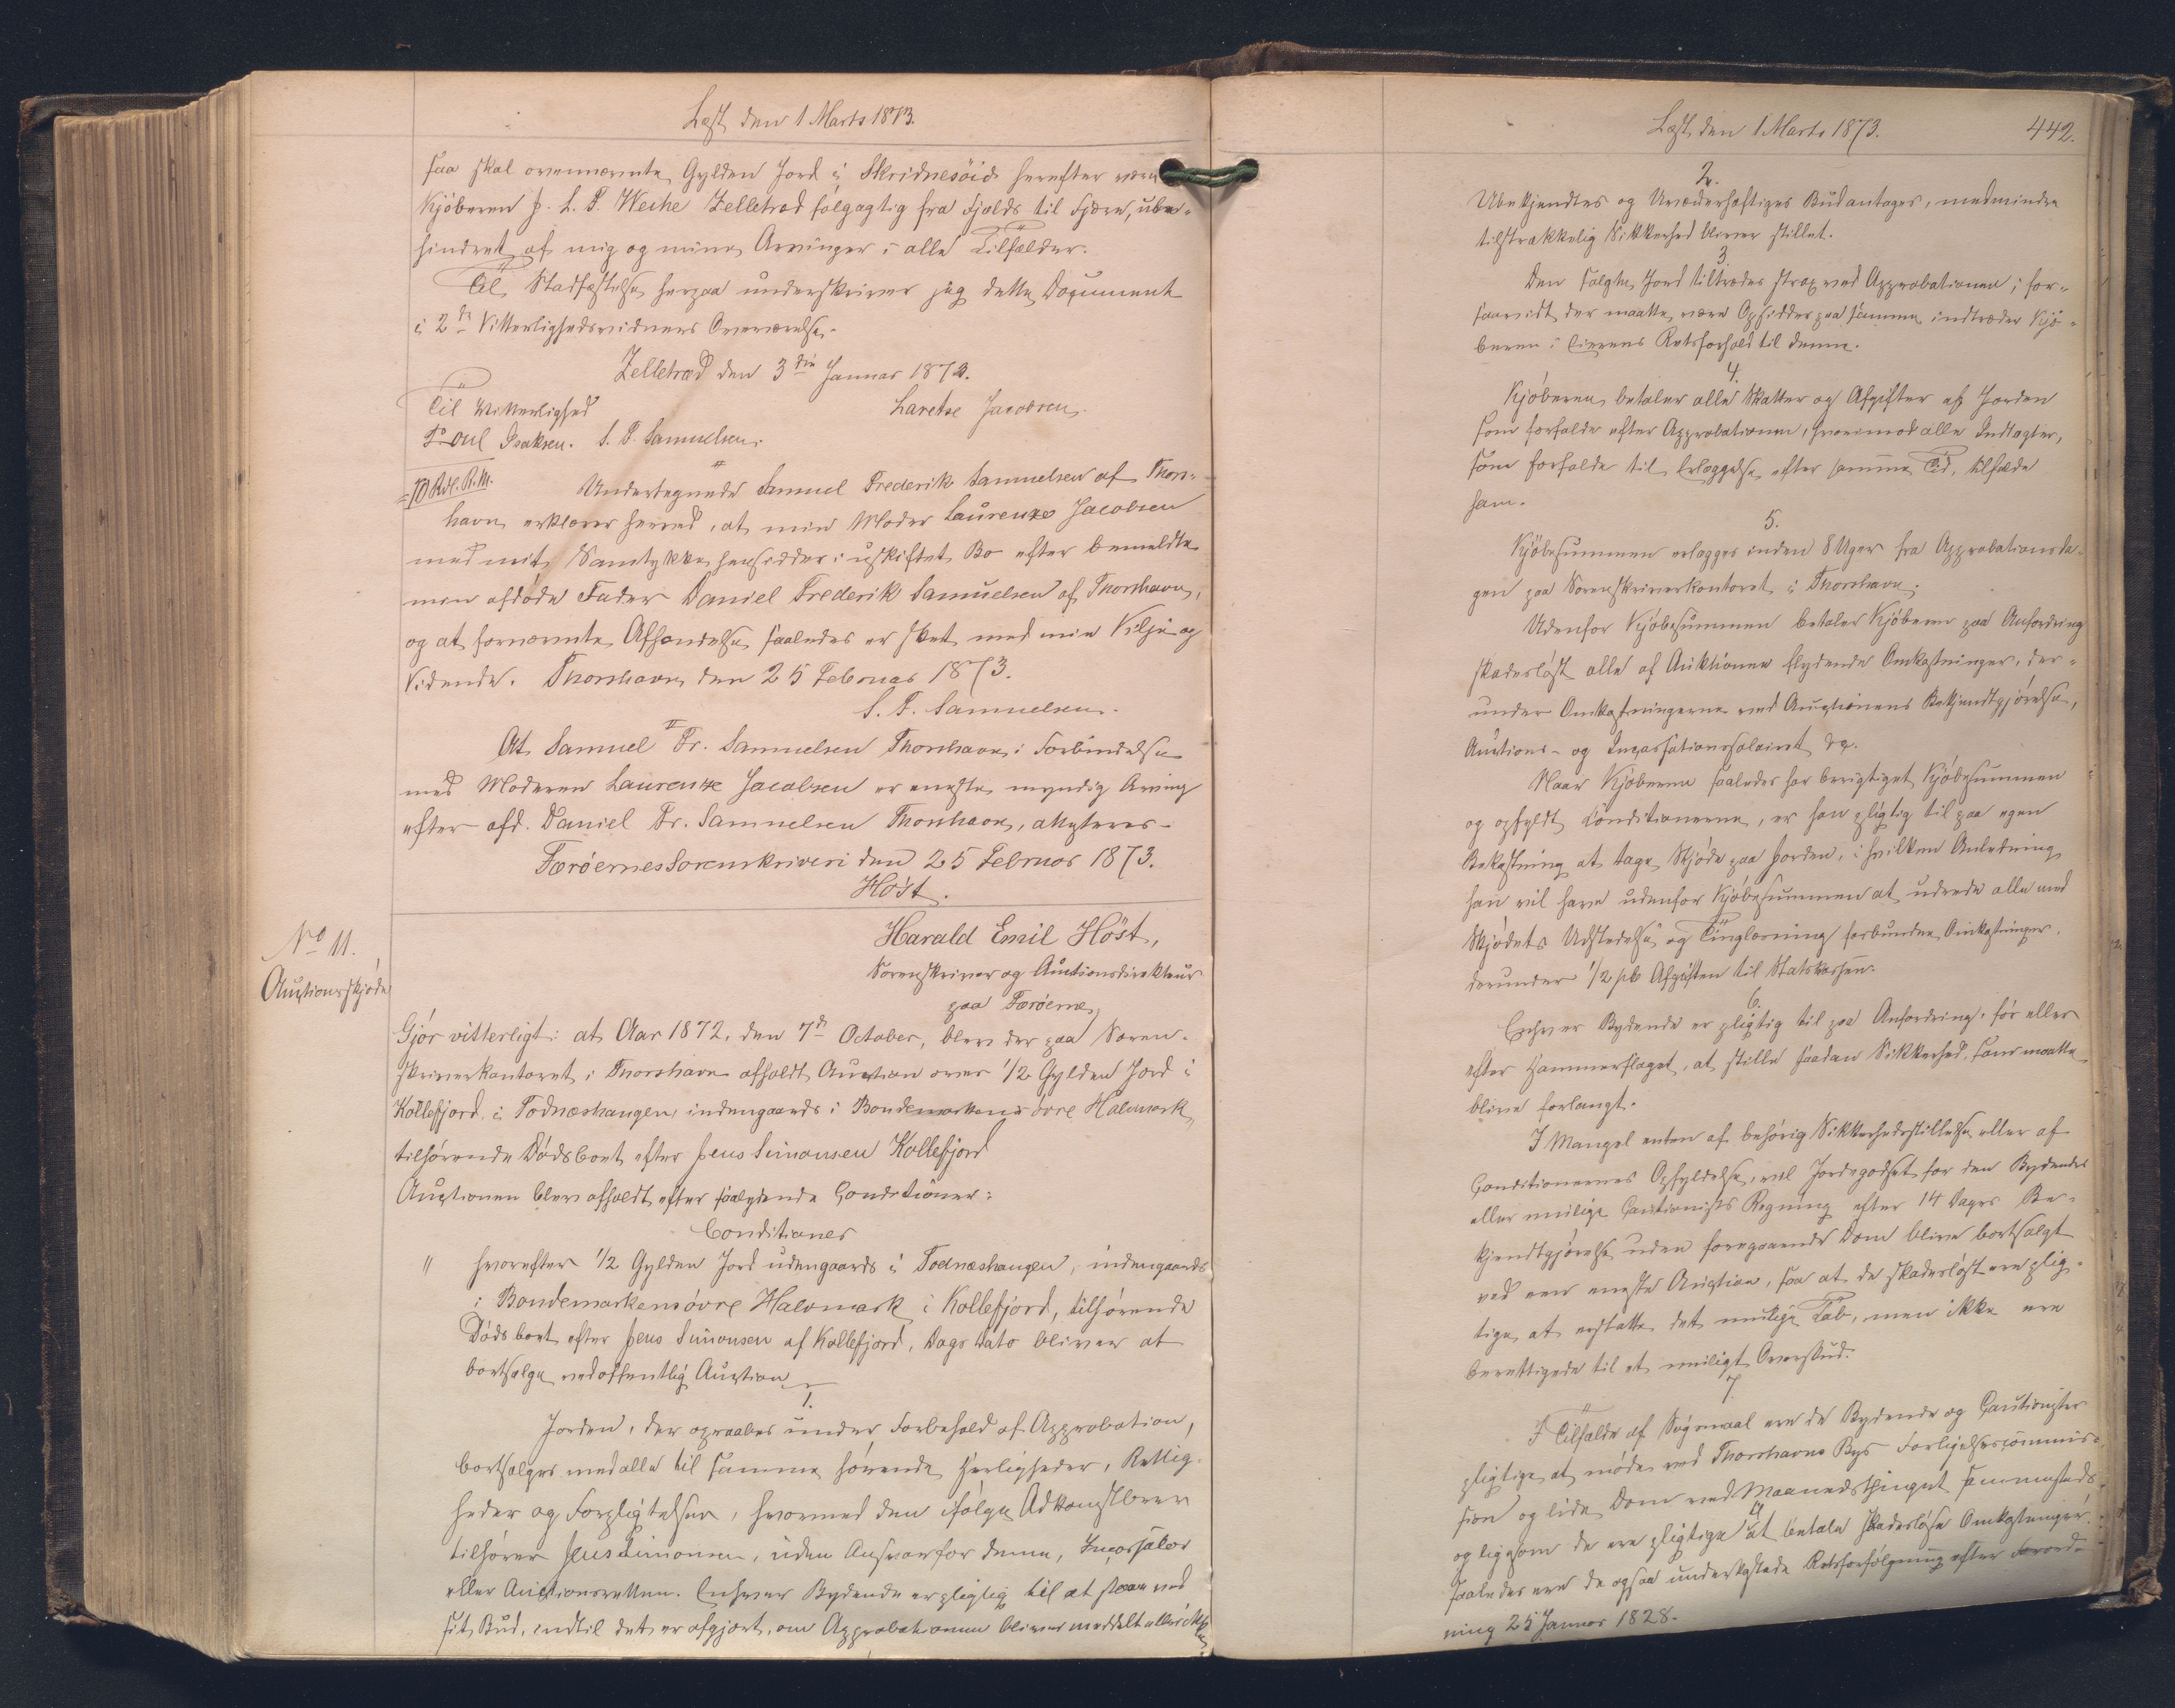 Læst den 1 Marts 1873.
saa skal ovennævnte Gylden Jord i Skridnesöid herefter være
Kjöberen J. L. P. Weihe Zelletræd følgagtig fra Fjelds til Fjære, ube-
hindret af mig og mine Arvinger i alle Tilfælder.
Til Stadfæstelse herpaa underskriver jeg dette Document
i 2de Vitterlighedsvidners Overværelse.
Zelletræd den 3die Januar 1873.
Til Vitterlighed
Laretze Jacobsen.
Poul Isaksen. S. F. Samuelsen.
10 Rdl. R.M.
Undertegnede Samuel Frederik Samuelsen af Thors-
havn erklærer herved, at min Moder Laurentze Jacobsen
med mit Samtykke hensidder i uskiftet Bo efter bemeldte
min afdøde Fader Daniel Frederik Samuelsen af Thorshavn,
og at fornævnte Afhændelse saaledes er skeet med min Vilje og
Vidende. Thorshavn den 25 Februar 1873.
S. F. Samuelsen.
At Samuel Fr. Samuelsen Thorshavn i Forbindelse
med Moderen Laurentze Jacobsen er eneste myndig Arving
efter afd. Daniel Fr. Samuelsen Thorshavn, attesteres.
Færöernes Sorenskriveri den 25 Februar 1873.
Höst.
No 11.
Auctionsskjöde
Harald Emil Höst,
Sorenskriver og Auctionsdirekteur
paa Færöerne,
Gjör vitterligt: at Aar 1872, den 7de October, blev der paa Soren-
skriverkontoret i Thorshavn afholdt Auction over 1/2 Gylden Jord i
Kollefjord i Todnæshaugen, indengaards i Bondemarkens övre Halvmark,
tilhørende Dødsboet efter Jens Simonsen Kollefjord
Auctionen blev afholdt efter saalydende Conditioner:
Conditioner
" hvorefter 1/2 Gylden Jord udengaards i Todnæshaugen, indengaards
i Bondemarkens övre Halvmark i Kollefjord, tilhørende
Dødsboet efter Jens Simonsen af Kollefjord, Dags Dato bliver at
bortsælge ved offentlig Auction
1.
Jorden, der opraabes under Forbehold af Approbation,
bortsælges med alle til samme hørende Herligheder, Rettig-
heder og Forpligtelser, hvormed den ifølge Adkomstbrev
tilhører Jens Simonsen, uden Ansvar for denne, Incassator
eller Auctionsretten. Enhver Bydende er pligtig til at staae ved
sit Bud, indtil det er afgjort, om Approbationen bliver meddelt eller ikke
Læst den 1 Marts 1873.
442.
2.
Ubekjendtes og Uvederhæftiges Bud antages, medmindre
tilstrækkelig Sikkerhed bliver stillet.
3.
Den solgte Jord tiltrædes strax ved Approbationen; for-
saavidt der maatte være Opsidder paa samme indtræder Kjö-
beren i Eierens Retsforhold til denne.
4.
Kjöberen betaler alle Skatter og Afgifter af Jorden
som forfalde efter Approbationen, hvorimod alle Indtægter,
som forfalde til Erlæggelse efter samme Tid, tilfalde
ham.
5.
Kjöbesummen erlægges inden 8 Uger fra Approbationsda-
gen paa Sorenskriverkontoret i Thorshavn.
Udenfor Kjöbesummen betaler Kjöberen paa Anfordring
skadesløst alle af Auktionen flydende Omkostninger, der-
under Omkostningerne ved Auctionens Bekjendtgjørelse,
Auctions- og Incassationssalairet &c.
Naar Kjöberen saaledes har berigtiget Kjöbesummen
og opfyldt Conditionerne, er han pligtig til paa egen
Bekostning at tage Skjöde paa Jorden, i hvilken Anledning
han vil have udenfor Kjöbesummen at udrede alle med
Skjödets Udstedelse og Tinglæsning forbundne Omkostninger,
derunder 1/2 pC Afgiften til Statskassen.
6.
Enhver Bydende er pligtig til paa Anfordring, før eller
efter Hammerslaget, at stille saadan Sikkerhed, som maatte
blive forlangt.
I Mangel enten af behørig Sikkerhedsstillelse eller af
Conditionernes Opfyldelse, vil Jordegodset for den Bydendes
eller mulige Cautionists Regning efter 14 Dages Be-
kjendtgjørelse uden foregaaende Dom blive bortsolgt
ved een eneste Auction, saa at de skadesløst ere plig-
tige at erstatte det mulige Tab, men ikke ere
berettigede til et muligt Overskud.
7.
I Tilfælde af Søgsmaal ere de Bydende og Cautionister
pligtige at møde ved Thorshavns Byes Forligelsescommis-
sion og lide Dom ved Maanedsthinget sammesteds
og ligesom de ere pligtige at betale skadesløse Omkostninger,
saaledes ere de ogsaa underkastede Retsforfølgning efter Forord-
ning 25 Januar 1828.